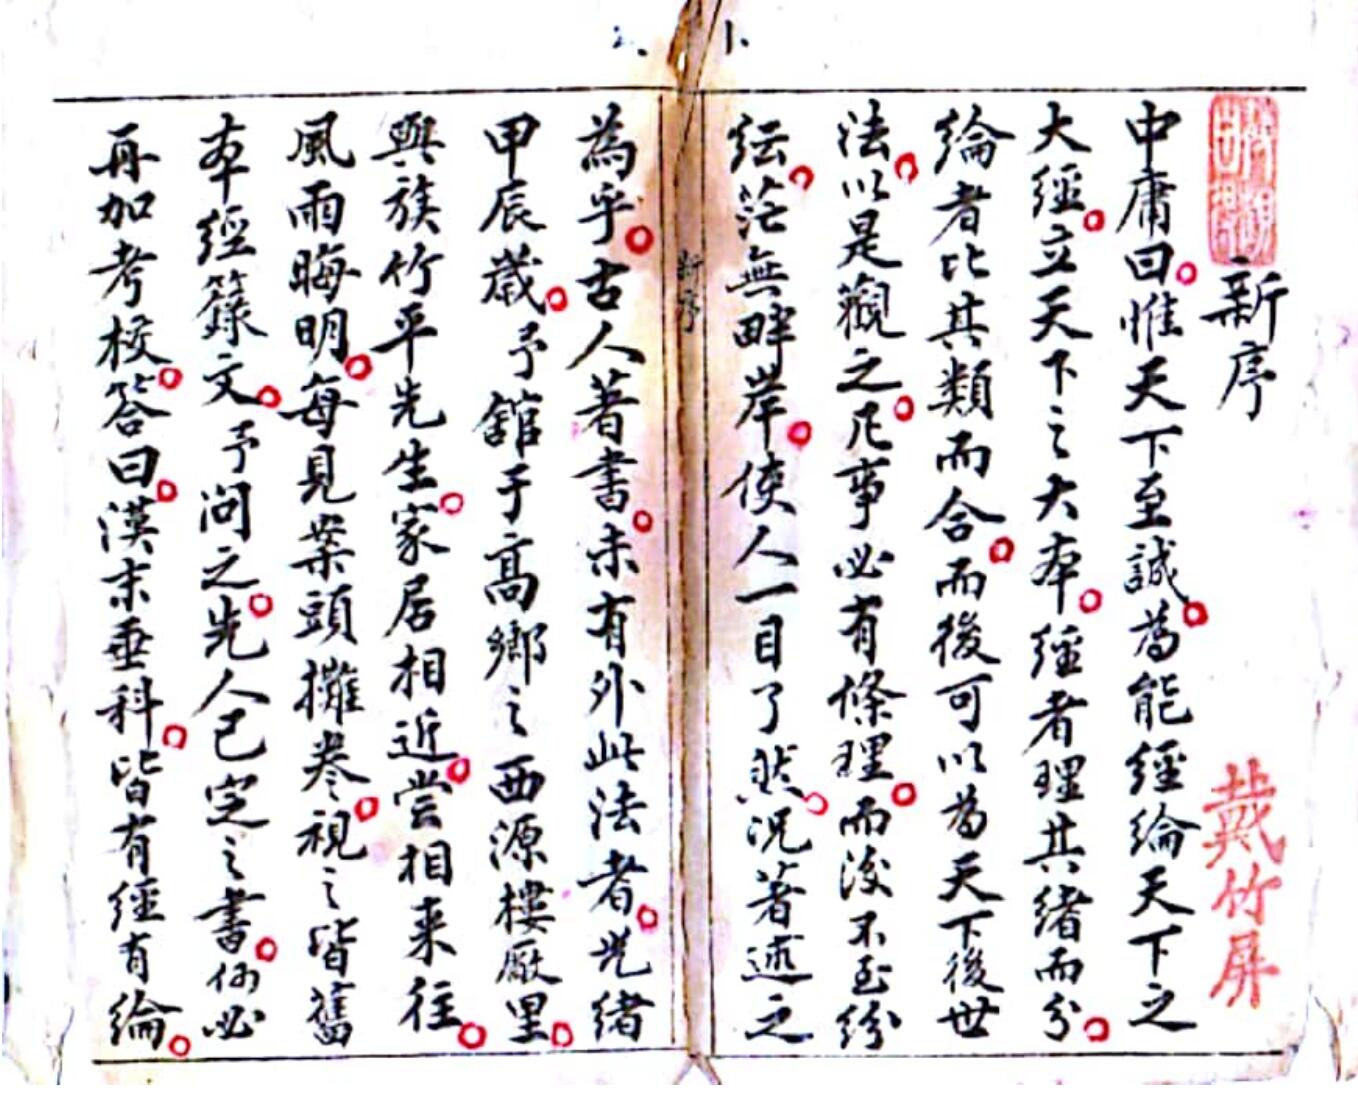 新序
戴竹屏
中庸曰惟天下至誠為能經綸天下之
大經立天下之大本經者理其緒而分
綸者比其類而合而後可以為天下後世
法以是觀之凡事必有條理而後不至紛
紜茫無畔岸使人一目了然況著述之
新序
為乎古人著書未有外此法者光緒
甲辰歲予館于高鄉之西源樓厰里
與族竹平先生家居相近嘗相来往
風雨晦明每見案頭攤卷視之皆舊
本經籙文予問之先人已定之書何必
再加考校答曰漢末垂科皆有經有綸